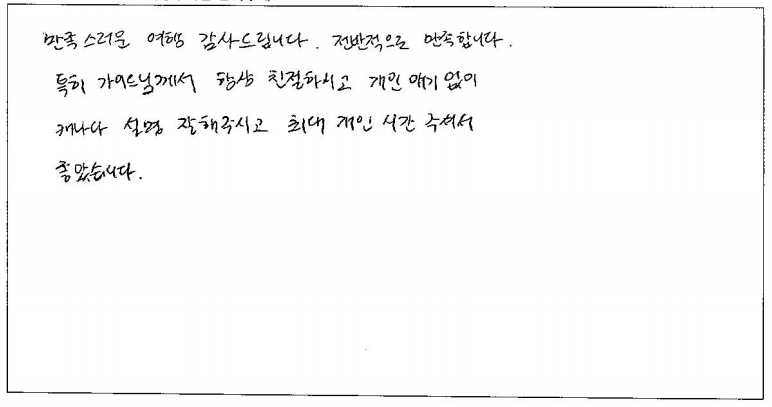 만족스러운 여행 감사드립니다. 전반적으로 만족합니다.
특히 가이드님께서 항상 친절하시고 개인 얘기 없이
캐나다 설명 잘해주시고 최대 개인 시간 주셔서
좋았습니다.